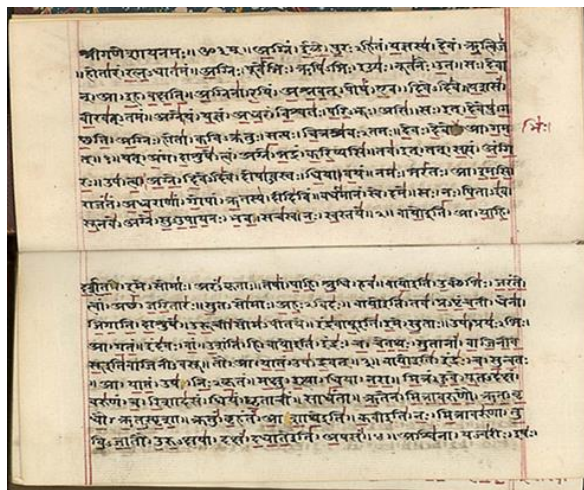 श्रीगणेशायनमः॥ॐ३म्॥अग्निं।ईळे।पुरःऽहितं।यज्ञस्य।देवं।ऋत्विजं
॥होतारं।रत्नऽधातमं॥अग्निः।पूर्वेभिः।ऋषिऽभिः।ईड्यः।नूतनैः।उत।सः।देवा
न्।आ।इह।वक्षति॥अग्निना।रयिं।अश्नवत्।पोषं।एव।दिवेऽदिवे॥यशसं
वीरवत्ऽतमं॥अग्ने।यं।यज्ञं।अध्वरं।विश्वतः।परिऽभूः।असि।सः।इत्।देवेषु।ग
च्छति॥अग्निः।होता।कविऽक्रतुः।सत्यः।चित्रश्रवःऽतमः॥देवः।देवेभिः।आ।गम
त्॥१॥यत्।अंग।दाशुषे।त्वं।अग्ने।भद्रं।करिष्यसि।तव।इत्।तत्।सत्यं।अंगि
रः॥उप।त्वा।अग्ने।दिवेऽदिवे।दोषाऽवस्तः।धिया।वयं।नमः।भरंतः।आ।इमसि
राजंतं।अध्वराणां।गोपां।ऋतस्य।दीदिविं॥वर्धमानं।स्वे।दमे॥सः।नः।पिताऽइव।
सूनवे।अग्ने।सुऽउपायनः।भव॥सचस्व।नः।स्वस्तये॥२॥वायोइति।आ।याहि।
दर्शत।इमे।सोमाः।अरंऽकृताः॥तेषां।पाहि।श्रुधि।हवं॥वायोइति।उक्थेभिः।जरंते
त्वां।अच्छ।जरितारः॥सुतऽसोमाः।अहःऽविदः॥वायोइति।तव।प्रऽपृंचती।धेना
जिगाति।दाशुषे॥उरूची।सोमऽपीतये॥इंद्रवायूइति।इमे।सुताः॥उप।प्रयःऽभिः।
आ।गतं॥इंदवः।वां।उशंति।हि॥वायोइति।इंद्रः।च।चेतथः।सुतानां।वाजिनीव
सूइतिवाजिनीवसू॥तौ।आ।यातं।उप।द्रवत्॥३॥वायोइति।इंद्रः।च।सुन्वतः
॥आ।यातं।उप।निःऽकृतं॥मक्षु।इत्था।धिया।नरा॥मित्रं।हुवे।पूतऽदक्षं
वरुणं।च।रिशादसं॥धियं।घृताचीं।साधंता॥ऋतेन।मित्रावरुणौ।ऋतऽवृ
धौ।ऋतऽस्पृशा॥क्रतुं।बृहंतं।आशाथेइति॥कवीइति।नः।मित्रावरुणा।तु
विऽजातौ।उरुऽक्षया॥दक्षं।दधातेइति।अपसं॥४॥अश्विना।यज्वरीः।इषः।